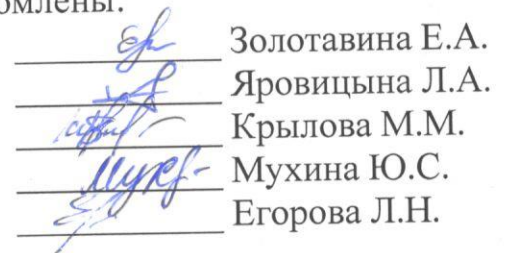 омлены:
Золотавина Е.А.
Яровицына Л.А.
Крылова М.М.
Мухина Ю.С.
Егорова Л.Н.